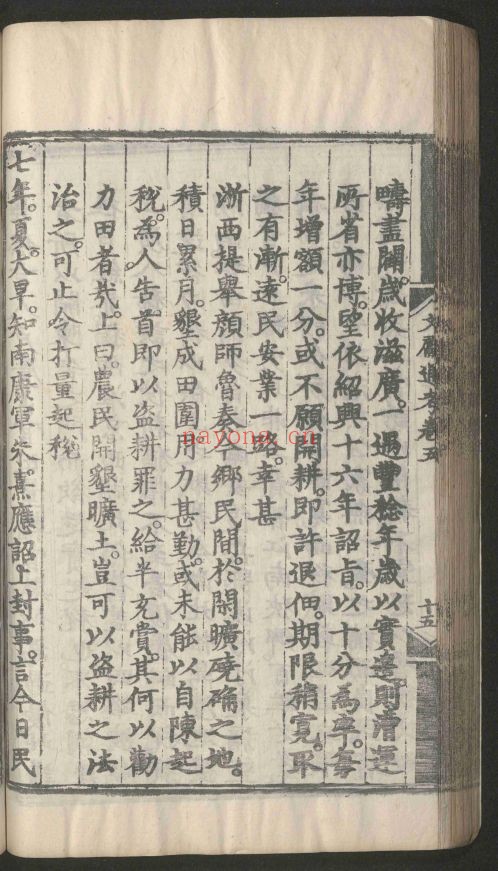 疇盡闢。歲收滋廣。一遇豐稔年歲以實邊。則漕運
所省亦博。望依紹興十六年詔旨。以十分為率。每
年增額一分。或不願開耕。即許退佃。期限稍寬。取
之有漸。遠民安業一路。幸甚
浙西提舉顏師魯奏今鄉民間。於閑曠磽确之地。
積日累月。墾成田圍用力甚勤。或未能以自陳起
稅。為人告首即以盜耕罪之。給半充賞。其何以勸
力田者哉。上曰。農民開墾曠土。豈可以盜耕之法
治之。可止令打量起稅
七年。夏。大旱。知南康軍朱熹應詔上封事。言今日民
文獻通考卷五
十五
nayona.cn